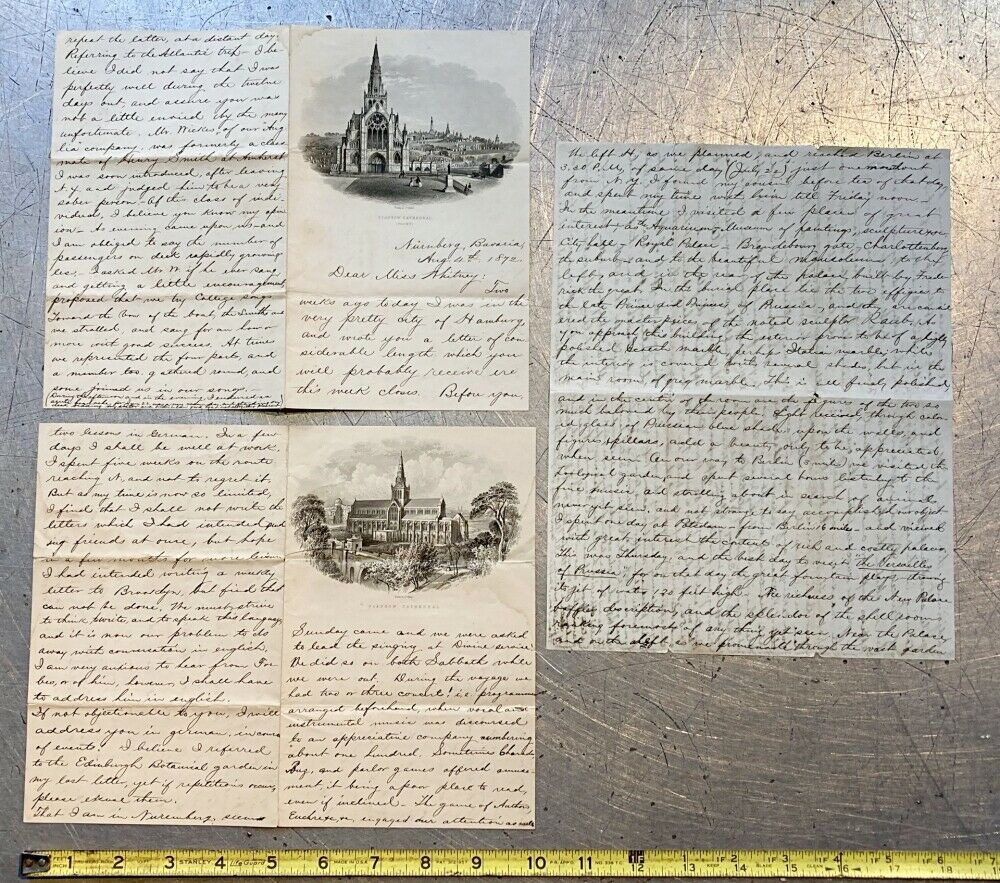 repeat the latter, at a distant day.
Referring to the Atlantic trip — I be
lieve I did not say that I was
perfectly well during the twelve
days out, and assure you was
not a little envied by the many
unfortunate. Mr. Wickes, of our Ang
lia company, was formerly a class
mate of Henry Smith at Amherst
I was soon introduced, after leaving
N.Y. and judged him to be a very
sober person. Of this class of indi
viduals, I believe you know my opin
ion. As evening came upon us and
I am obliged to say the number of
passengers on deck rapidly growing
less. I asked Mr. W. if he ever sang
and getting a little encouragement
proposed that we try College songs
Toward the bow of the boat, the Smiths and
we strolled, and sang for an hour or
more with good success. At times
we represented the four parts, and
a number too, gathered round, and
some joined us in our songs.—
GLASGOW CATHEDRAL
Nürnberg, Bavaria,
Aug. 4th. 1872.
Dear Miss Whitney:
Two
weeks ago today I was in the
very pretty city of Hamburg
and wrote you a letter of con
siderable length which you
will probably receive ere
this week closes. Before you,
two lessons in German. In a few
days I shall be well at work,
I spent five weeks on the route
reaching N, and not to regret it.
But as my time is now so limited,
I find that I shall not write the
letters which I had intended
my friends at ours, but hope
in a few months for more leisure
I had intended writing a weekly
letter to Brooklyn, but find this
can not be done. We must strive
to think, write, and to speak this language,
and it is now our problem to do
away with conversation in english.
I am very anxious to hear from For
bes, or of him, however, I shall have
to address him in english.
If not objectionable to you, I will
address you in german, in course
of events. I believe I referred
to the Edinburgh Botanical garden in
my last letter, yet if repetitions occur,
please excuse them.
That I am in Nuremberg, seems
GLASGOW CATHEDRAL
Sunday came and we were asked
to lead the singing at Divine service
We did so on both Sabbath while
we were out. During the voyage we
had two or three concerts! i.e. programme
arranged beforehand, when vocal and
instrumental music was discoursed
to an appreciative company numbering
about one hundred. Sometimes
and parlor games offered amuse
ment, it being a poor place to read,
even if inclined. The game of Authors
Euchre, engaged our attention as well
the left H, as we planned, and reached Berlin at
3.30 P.M. of same day (July 22) just one month
from N.Y. I found my cousin before tea of that day,
and spent my time with him till Friday noon.
In the meantime I visited a few places of great
interest Aquarium, Museum of paintings, sculpture
City hall, Royal Palace, Brandenburg gate, Charlottenburg
the suburb and to the beautiful mausoleum,
and in the rear of the palace built by Frede
rick the great. In the burial place lie the two effigies of
the late Prince and Princess of Prussia, and are consid
ered the masterpieces of the noted sculptor Rauch. As
you approach this building the exterior proves to be of highly
polished Scotch marble, perhaps Italian marble, while
the interior is covered with varied shades, but in the
main room, of grey marble. This is all finely polished
and in the center of the room are the figures of the two so
much beloved by their people. Light received through color
ed glass of Prussian blue shade upon the walls and
figures & pillars, adds a beauty only to be appreciated
when seen. On our way to Berlin we visited the
Zoological garden, and spent several hours listening to the
fine music, and strolling about in search of
and not strange to say accomplished our object
I spent one day at Potsdam from Berlin 16 miles and viewed
with great interest the content of rich and costly palaces.
This was Thursday, and the best day to visit the Versailles
of Prussia, for on that day the great fountain plays, throwing
its jet of water 120 feet high. The richness of the New Palace
baffles description, and the splendor of the shell room,
ranking foremost of any thing yet seen. Near the Palace,
and on the left, as we promenade through the vast garden
1 2 3 4 5 6 7 8 9 10 11 12 13 14 15 16 17 18
STANLEY
MADE IN U.S.A.
1F 2 3 4 5 6 7